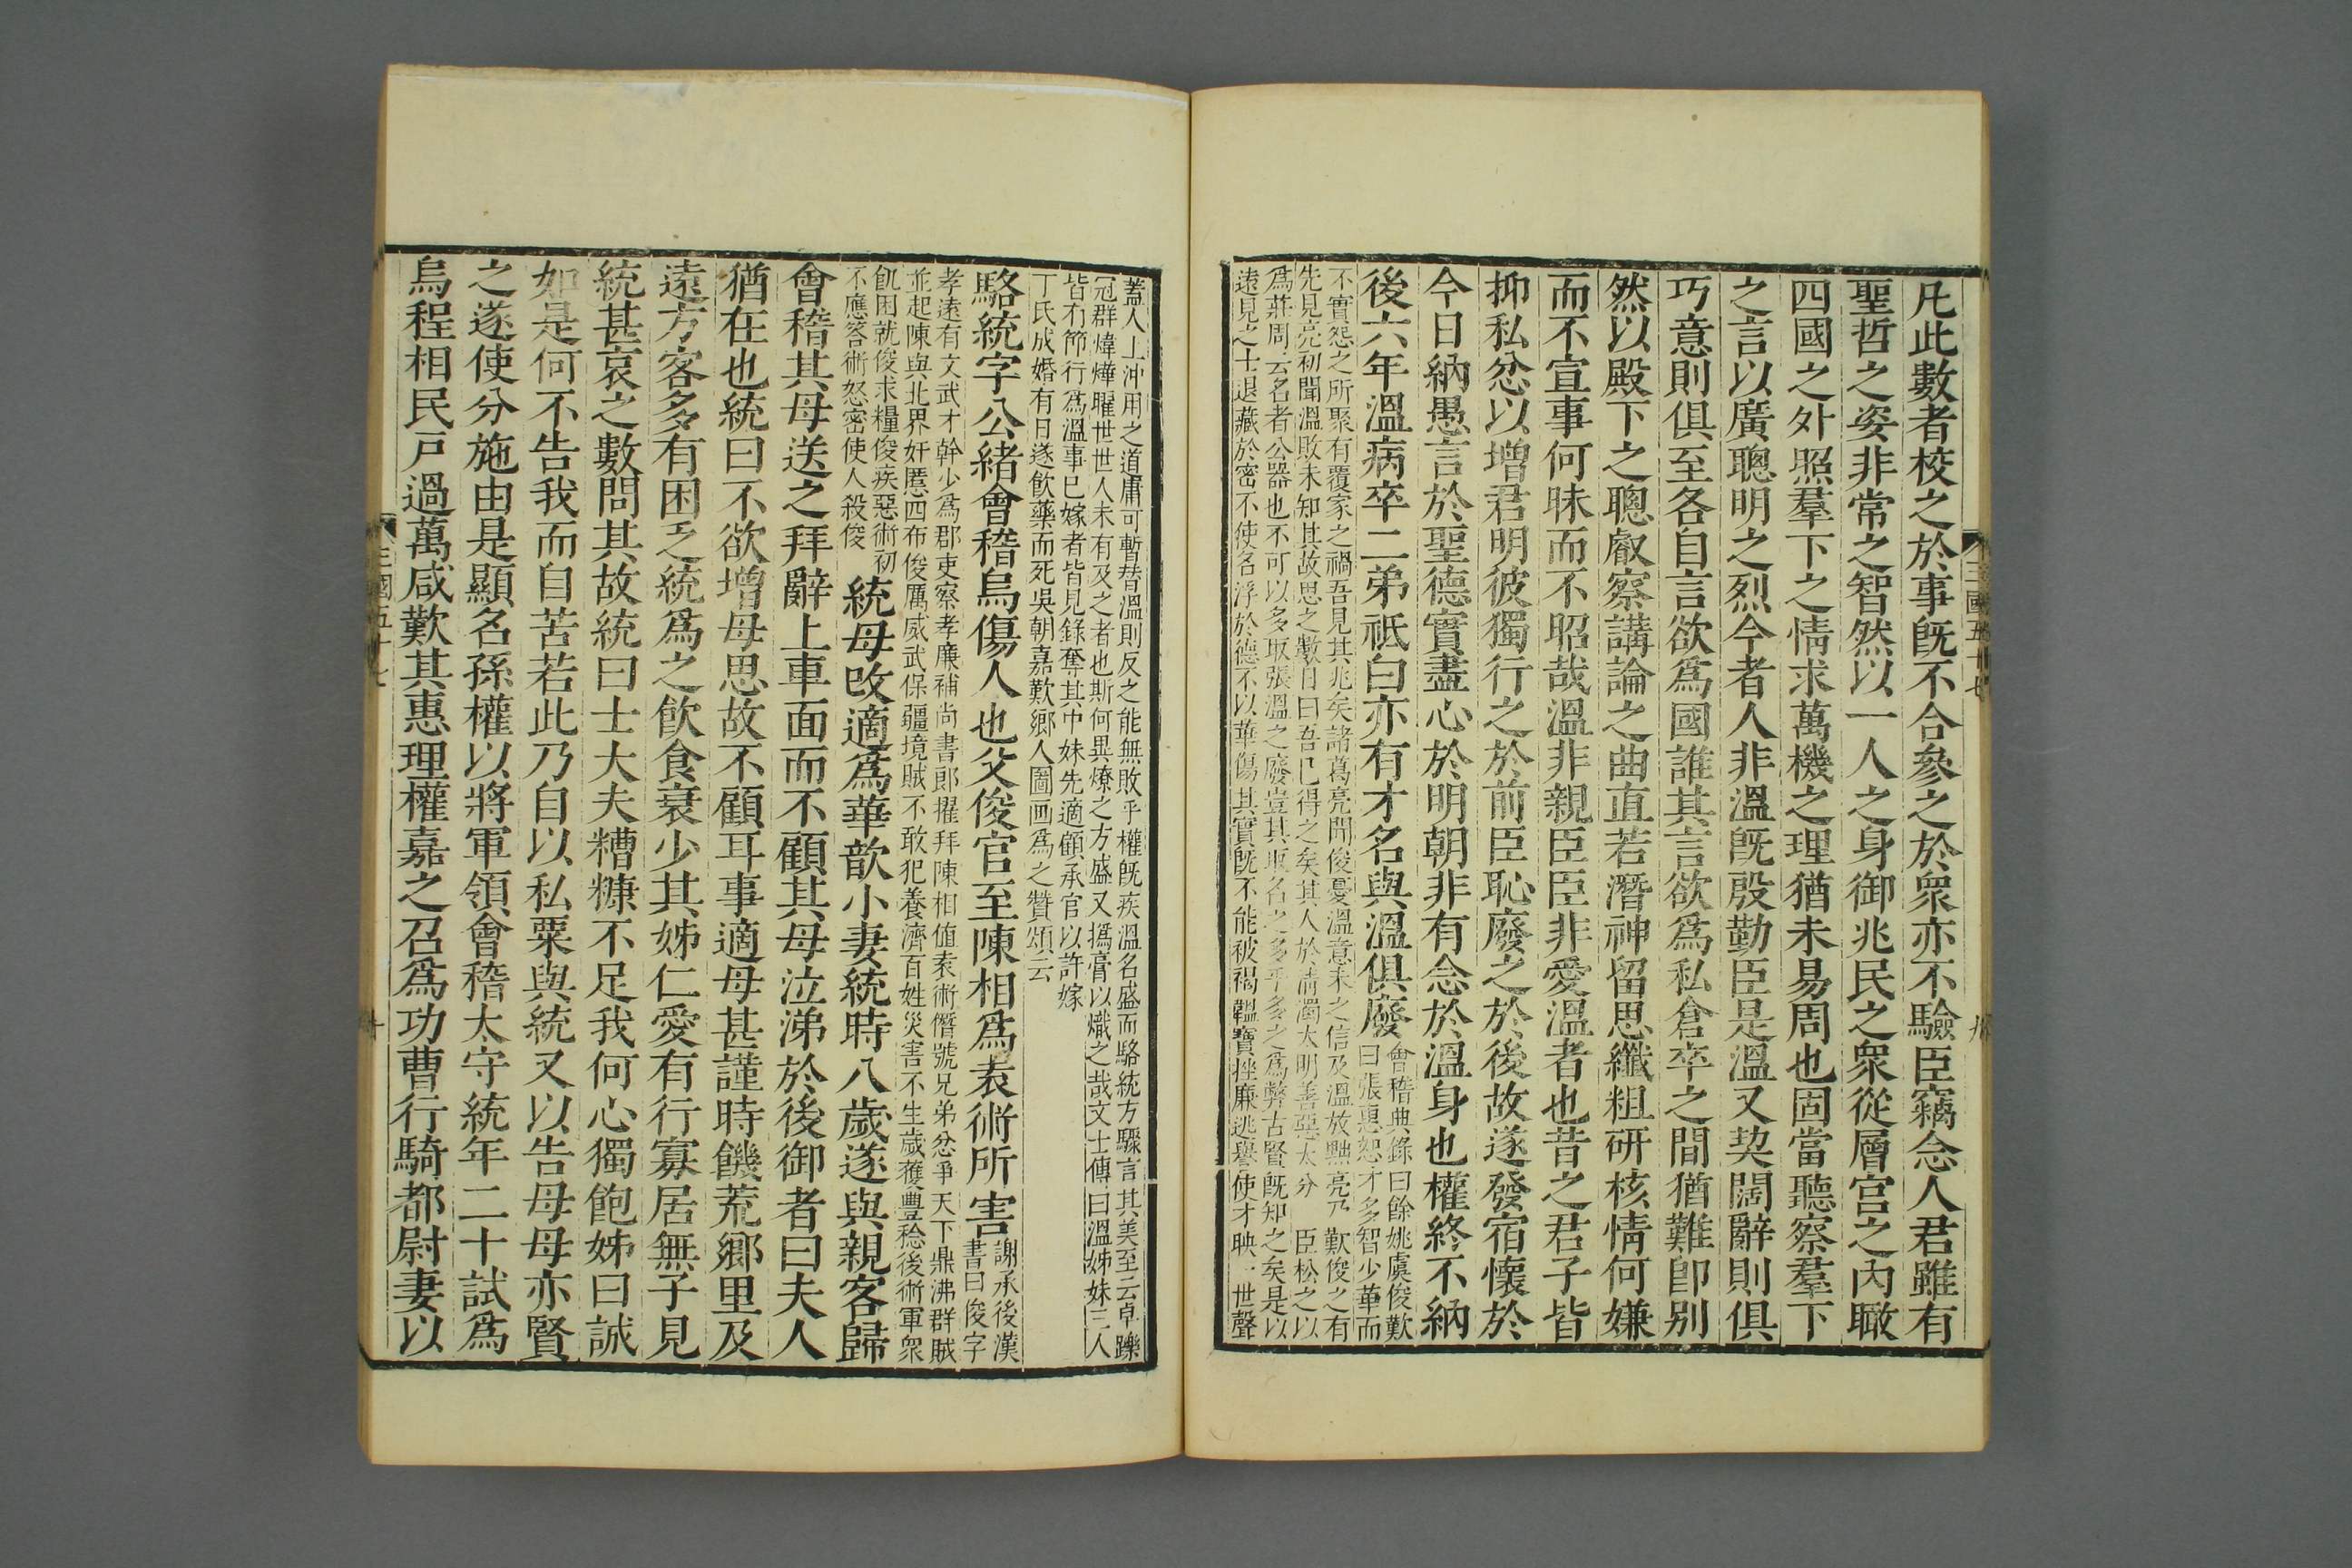 凡此數者校之於事旣不合參之於衆亦不驗臣竊念人君雖有
聖哲之姿非常之智然以一人之身御兆民之衆從層宫之內瞰
四國之外照羣下之情求萬機之理猶未易周也固當聽察羣下
之言以廣聰明之烈今者人非溫旣殷勤臣是溫又契闊辭則俱
巧意則俱至各自言欲爲國誰其言欲爲私倉卒之間猶難卽别
然以殿下之聰叡察講論之曲直若潛神留思纖粗硏核情何嫌
而不宣事何昧而不昭哉溫非親臣臣非愛溫者也昔之君子皆
抑私忿以增君明彼獨行之於前臣恥廢之於後故遂發宿懷於
今日納愚言於聖德實盡心於明朝非有念於溫身也權終不納
後六年溫病卒二弟祗白亦有才名與溫俱廢
會稽典錄曰餘姚虞俊歎
曰張惠恕才多智少華而
不實怨之所聚有覆家之禍吾見其兆矣諸葛亮聞俊憂溫意未之信及溫放黜亮乃歎俊之有
先見亮初聞溫敗未知其故思之數日曰吾已得之矣其人於淸濁太明善惡太分 臣松之以
爲莊周云名者公器也不可以多取張溫之廢豈其取名之多乎多之爲弊古賢旣知之矣是以
遠見之士退藏於密不使名浮於德不以華傷其實旣不能被褐韞寶挫廉逃譽使才映一世聲
三國五十七
九
蓋人上沖用之道庸可暫替溫則反之能無敗乎權旣疾溫名盛而駱統方驟言其美至云卓躒
冠群煒燁曜世世人未有及之者也斯何異燎之方盛又撝膏以熾之哉文士傳曰溫姊妹三人
皆有節行爲溫事已嫁者皆見錄奪其中妹先適顧承官以許嫁
丁氏成婚有日遂飮藥而死吳朝嘉歎鄉人圖画爲之贊頌云
駱統字公緒會稽烏傷人也父俊官至陳相爲袁術所害
謝承後漢
書曰俊字
孝遠有文武才幹少爲郡吏察孝廉補尚書郎擢拜陳相値袁術僭號兄弟忿爭天下鼎沸群賊
並起陳與北界奸慝四布俊厲威武保疆境賊不敢犯養濟百姓災害不生歲穫豐稔後術軍衆
飢困就俊求糧俊疾惡術初
不應答術怒密使人殺俊
統母改適爲華歆小妻統時八歲遂與親客歸
會稽其母送之拜辭上車面而不顧其母泣涕於後御者曰夫人
猶在也統曰不欲增母思故不顧耳事適母甚謹時饑荒鄉里及
遠方客多有困乏統爲之飮食衰少其姊仁愛有行寡居無子見
統甚哀之數問其故統曰士大夫糟糠不足我何心獨飽姊曰誠
如是何不告我而自苦若此乃自以私粟與統又以告母母亦賢
之遂使分施由是顯名孫權以將軍領會稽太守統年二十試爲
烏程相民戸過萬咸歎其惠理權嘉之召爲功曹行騎都尉妻以
三國五十七
十